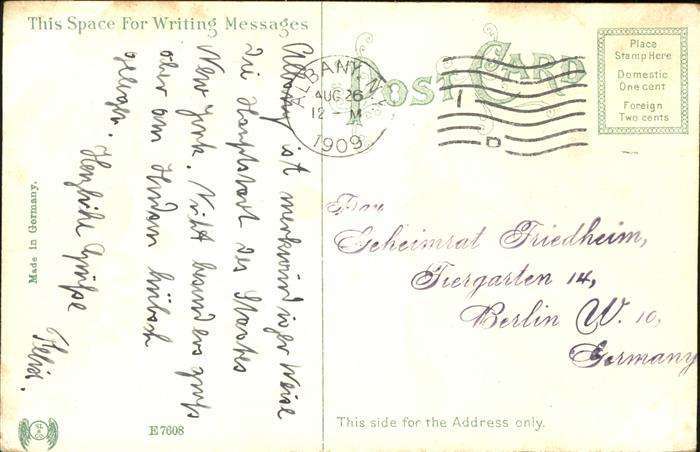 This Space For Writing Messages
Albany ist merkwürdiger Weise
die Hauptstadt des Staates
New York. Nicht besonders groß
aber am Hudson hübsch
gelegen. Herzliche Grüße
Felix.
Made in Germany.
E 7608
POST CARD
ALBANY N.Y.
AUG 26
12 - M
1909
1
D
Place
Stamp Here
Domestic
One cent
Foreign
Two cents
Frau
Geheimrat Friedheim,
Tiergarten 14,
Berlin W. 10,
Germany
This side for the Address only.